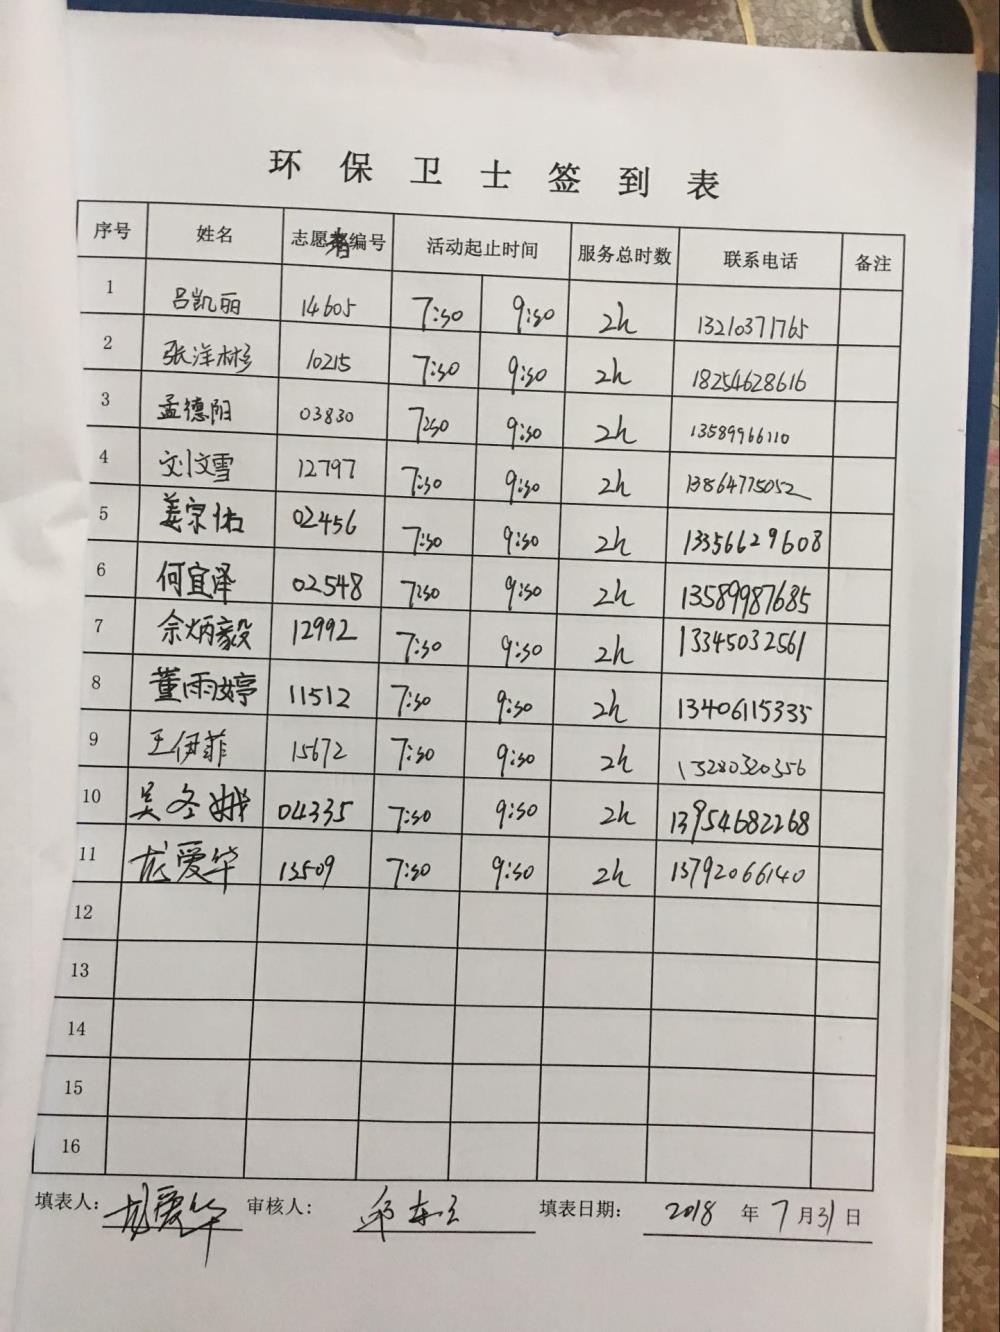 环保卫士签到表
序号 姓名 志愿者编号 活动起止时间 服务总时数 联系电话 备注
1 吕凯丽 14605 7:30 9:30 2h 13210371765
2 张洋彬 10215 7:30 9:30 2h 18254628616
3 孟德阳 03830 7:30 9:30 2h 13589966110
4 刘文雪 12797 7:30 9:30 2h 13864775052
5 姜宗佑 02456 7:30 9:30 2h 13356629608
6 何宜泽 02548 7:30 9:30 2h 13589987685
7 佘炳毅 12992 7:30 9:30 2h 13345032561
8 董雨婷 11512 7:30 9:30 2h 13406115335
9 王伊菲 15672 7:30 9:30 2h 13280320356
10 吴冬娥 04335 7:30 9:30 2h 13954682268
11 龙爱华 13509 7:30 9:30 2h 13792066140
12
13
14
15
16
填表人: 龙爱华 审核人: 邱 填表日期: 2018 年 7 月 31 日